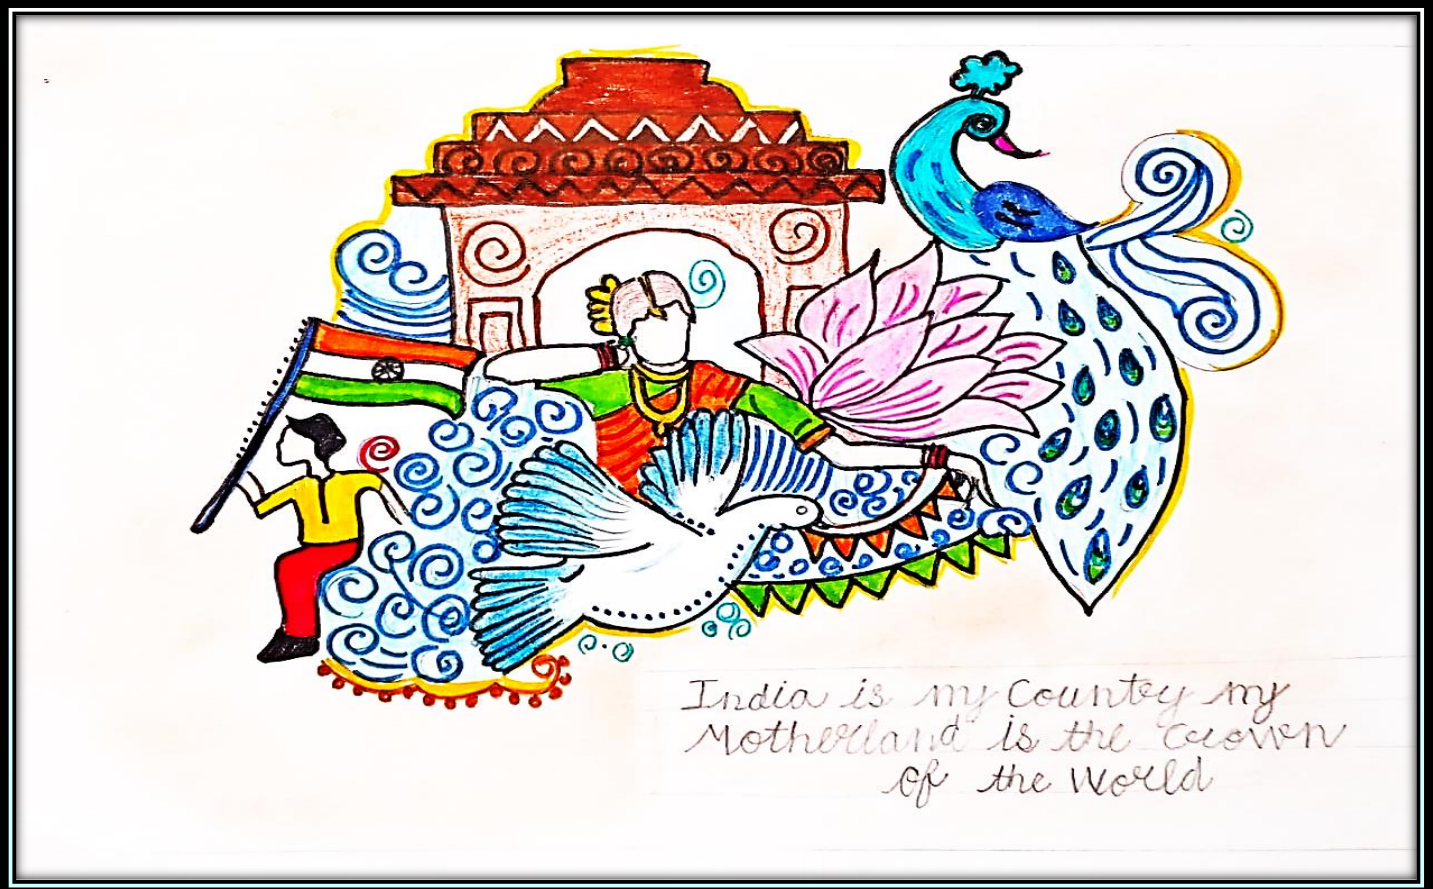 India is my Country my
Motherland is the crown
of the World